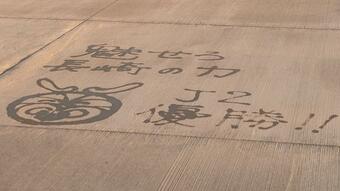 魅せろ
長崎の力
J2
優勝!!